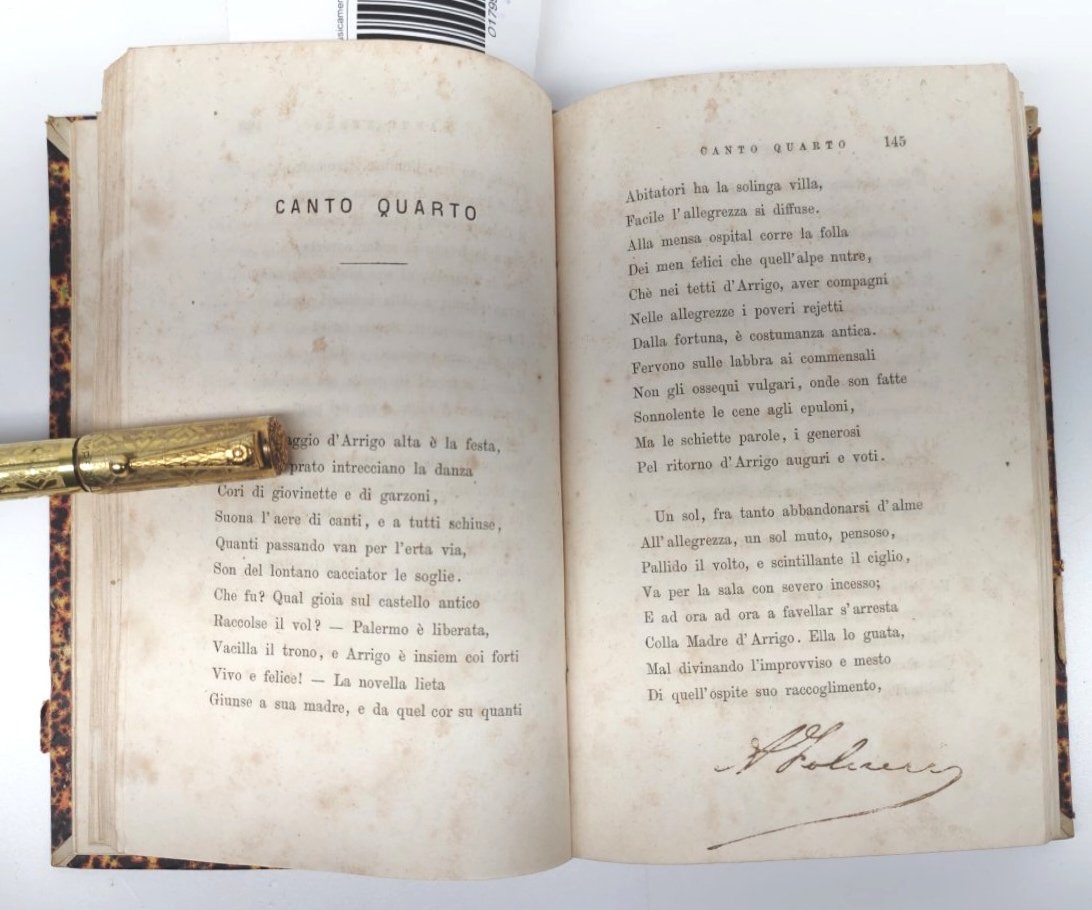 usicamen
01795
CANTO QUARTO
aggio d'Arrigo alta è la festa,
prato intrecciano la danza
Cori di giovinette e di garzoni,
Suona l'aere di canti, e a tutti schiuse,
Quanti passando van per l'erta via,
Son del lontano cacciator le soglie.
Che fu? Qual gioia sul castello antico
Raccolse il vol? — Palermo è liberata,
Vacilla il trono, e Arrigo è insiem coi forti
Vivo e felice! — La novella lieta
Giunse a sua madre, e da quel cor su quanti
CANTO QUARTO 145
Abitatori ha la solinga villa,
Facile l'allegrezza si diffuse.
Alla mensa ospital corre la folla
Dei men felici che quell'alpe nutre,
Chè nei tetti d'Arrigo, aver compagni
Nelle allegrezze i poveri rejetti
Dalla fortuna, è costumanza antica.
Fervono sulle labbra ai commensali
Non gli ossequi vulgari, onde son fatte
Sonnolente le cene agli epuloni,
Ma le schiette parole, i generosi
Pel ritorno d'Arrigo auguri e voti.
Un sol, fra tanto abbandonarsi d'alme
All'allegrezza, un sol muto, pensoso,
Pallido il volto, e scintillante il ciglio,
Va per la sala con severo incesso;
E ad ora ad ora a favellar s'arresta
Colla Madre d'Arrigo. Ella lo guata,
Mal divinando l'improvviso e mesto
Di quell'ospite suo raccoglimento,